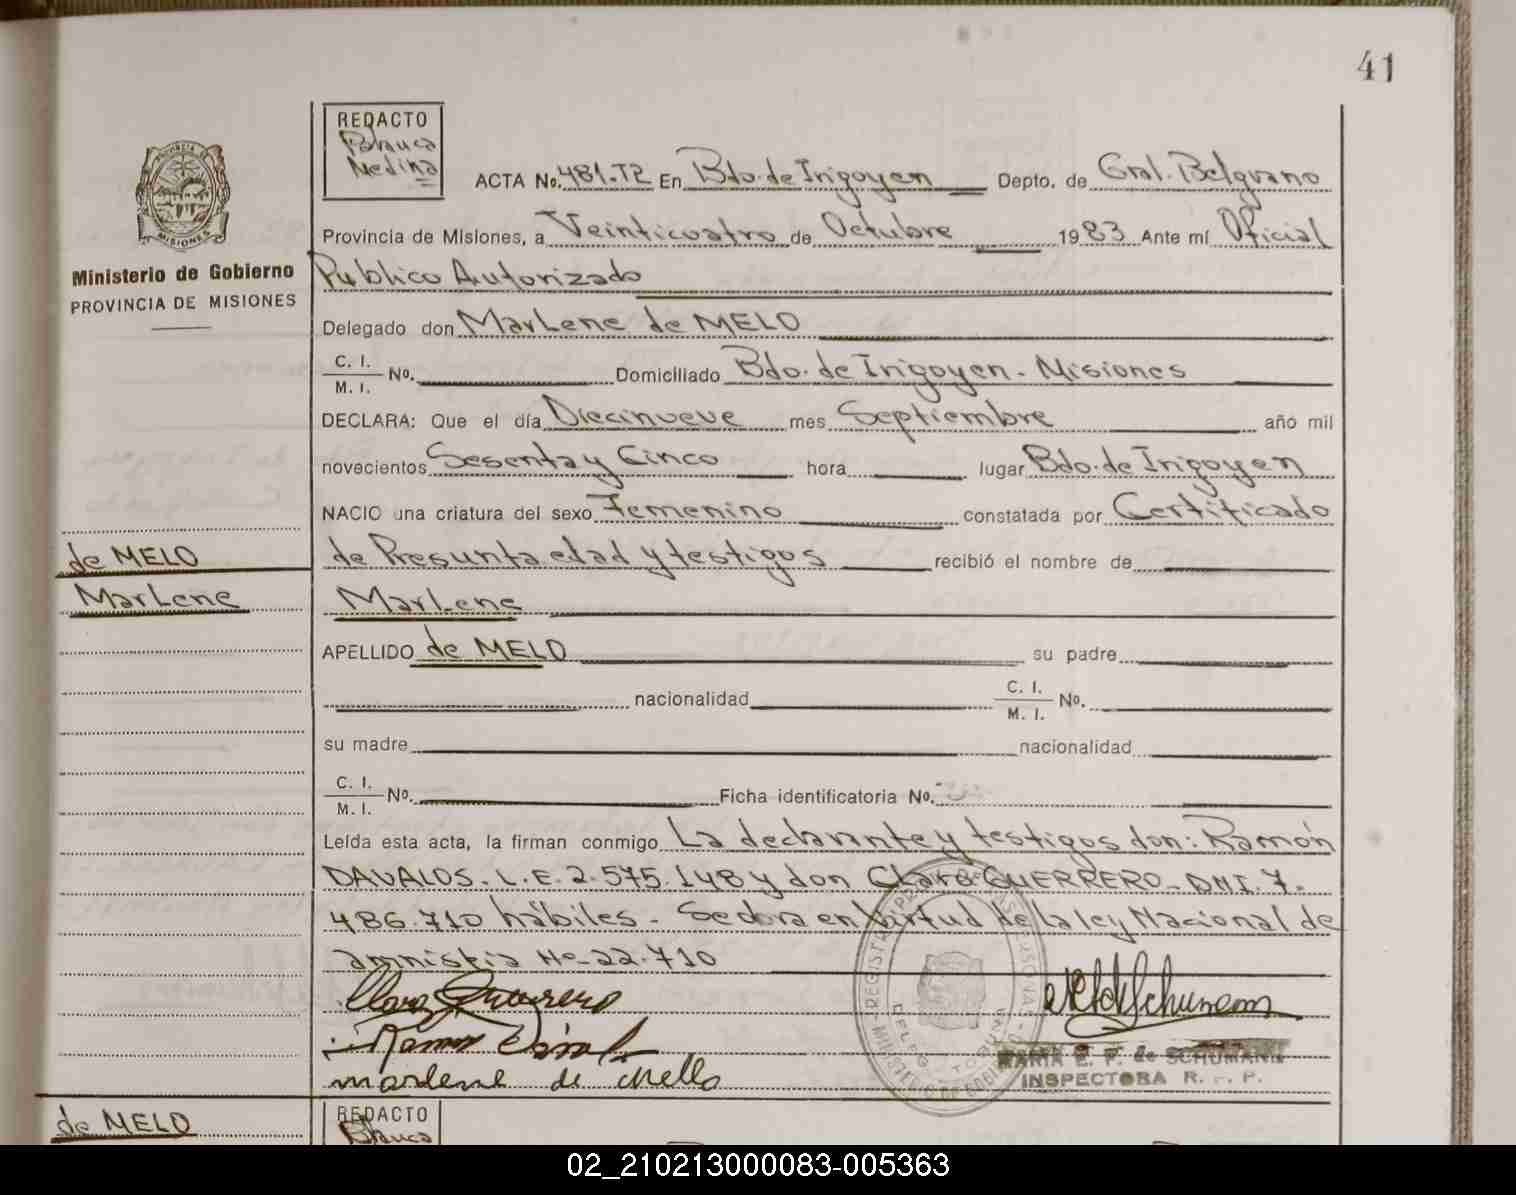 41
REDACTO
Blanca
Medina
ACTA No. 481-T2 En Bdo. de Irigoyen Depto. de Gral. Belgrano
Provincia de Misiones, a Veinticuatro de Octubre 1983 Ante mí Oficial
Publico Autorizado
Delegado don MarLene de MELO
C. I.
M. I. No. Domiciliado Bdo. de Irigoyen - Misiones
DECLARA: Que el día Diecinueve mes Septiembre año mil
novecientos Sesenta y Cinco hora lugar Bdo. de Irigoyen
NACIO una criatura del sexo Femenino constatada por Certificado
de Presunta edad y testigos recibió el nombre de
MarLene
APELLIDO de MELO su padre
nacionalidad C. I.
M. I. No.
su madre nacionalidad
C. I.
M. I. No. Ficha identificatoria No.
Leída esta acta, la firman conmigo La declarante y testigos don: Ramón
DAVALOS. L.E. 2.575.148 y don Claro GUERRERO - DNI. 7.
486.710 hábiles - Sedora en Virtud de la ley Nacional de
amnistia No- 22.710
Claro Guerrero
Ramon
marlene de Mello
MARIA E. P. de SCHUMANN
INSPECTORA R. P.
PROVINCIA DE
MISIONES
Ministerio de Gobierno
PROVINCIA DE MISIONES
de MELO
MarLene
de MELO
REDACTO
Blanca
02_210213000083-005363